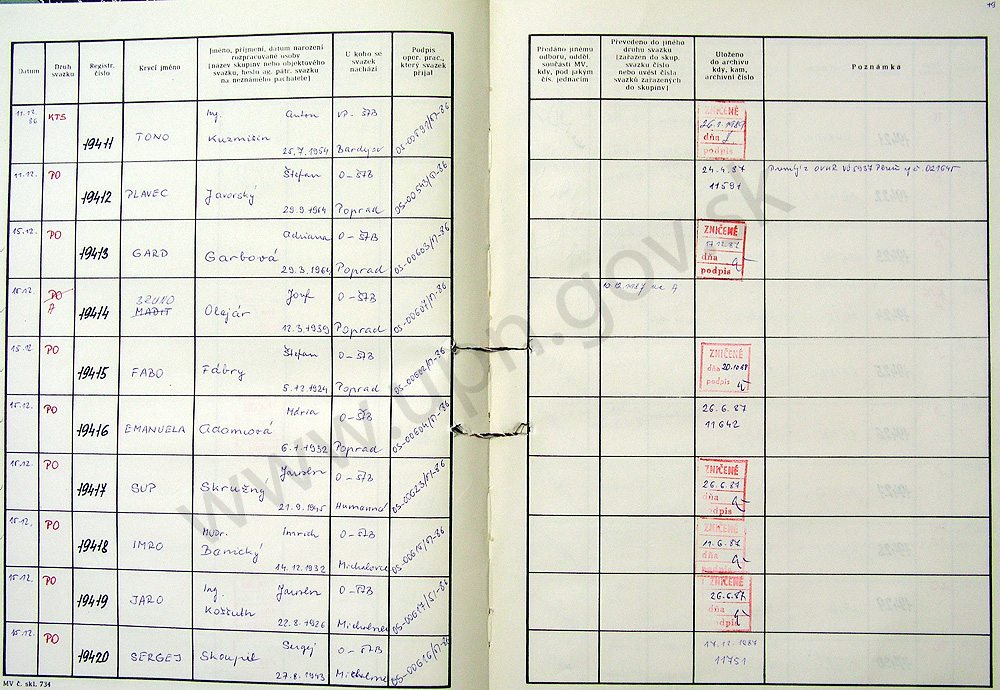 19
Datum
Druh svazku
Registr. číslo
Krycí jméno
Jméno, příjmení, datum narození
rozpracované osoby
[název skupiny nebo objektového
svazku, heslo ag. pátr. svazku
na neznámého pachatele]
U koho se
svazek
nachází
Podpis
oper. prac.,
který svazek
přijal
Předáno jinému
odboru, odděl.
součásti MV,
kdy, pod jakým
čís. jednacím
Převedeno do jiného
druhu svazku
[zařazen do skup.
svazku číslo
nebo uvést čísla
svazků zařazených
do skupiny]
Uloženo
do archivu
kdy, kam,
archivní číslo
Poznámka
11.12. 86 KTS 19411 TONO Ing. Anton
Kuzmišin
25.7.1954 Bardejov OS-00591/17-86
ZNIČENÉ
26.1.1989
dňa
podpis
11.12. PO 19412 PLAVEC Štefan O-ŠTB
Javorský
29.9.1964 Poprad OS-00543/17-86
24.4.87
11591
15.12. PO 19413 GARD Adriana O-ŠTB
Garbová
29.3.1964 Poprad OS-00603/17-86
ZNIČENÉ
17.12.87
dňa
podpis
15.12. PO A 19414 BRUNO MADIT Jozef O-ŠTB
Olejár
12.3.1939 Poprad OS-00607/17-86
15.12 PO 19415 FABO Štefan O-ŠTB
Fábry
5.12.1924 Poprad OS-00602/17-86
ZNIČENÉ
dňa 20.10.87
podpis
15.12. PO 19416 EMANUELA Mária O-ŠTB
Adamiová
6.1.1932 Poprad OS-00604/17-86
26.6.87
11642
15.12. PO 19417 SUP Jaroslav O-ŠTB
Skružný
21.9.1945 Humenné OS-00623/17-86
ZNIČENÉ
26.6.87
dňa
podpis
15.12. PO 19418 IMRO MUDr. Imrich O-ŠTB
Banický
14.12.1932 Michalovce OS-00615/17-86
ZNIČENÉ
11.6.87
dňa
podpis
15.12. PO 19419 JARO Ing. Jaroslav O-ŠTB
Košúth
22.8.1926 Michalovce
ZNIČENÉ
26.6.87
dňa
podpis
15.12. PO 19420 SERGEJ Sergej O-ŠTB
Skoupil
27.8.1943 Michalovce OS-00616/17-86
17.12.1987
11751
MV č. skl. 734
www.upn.gov.sk